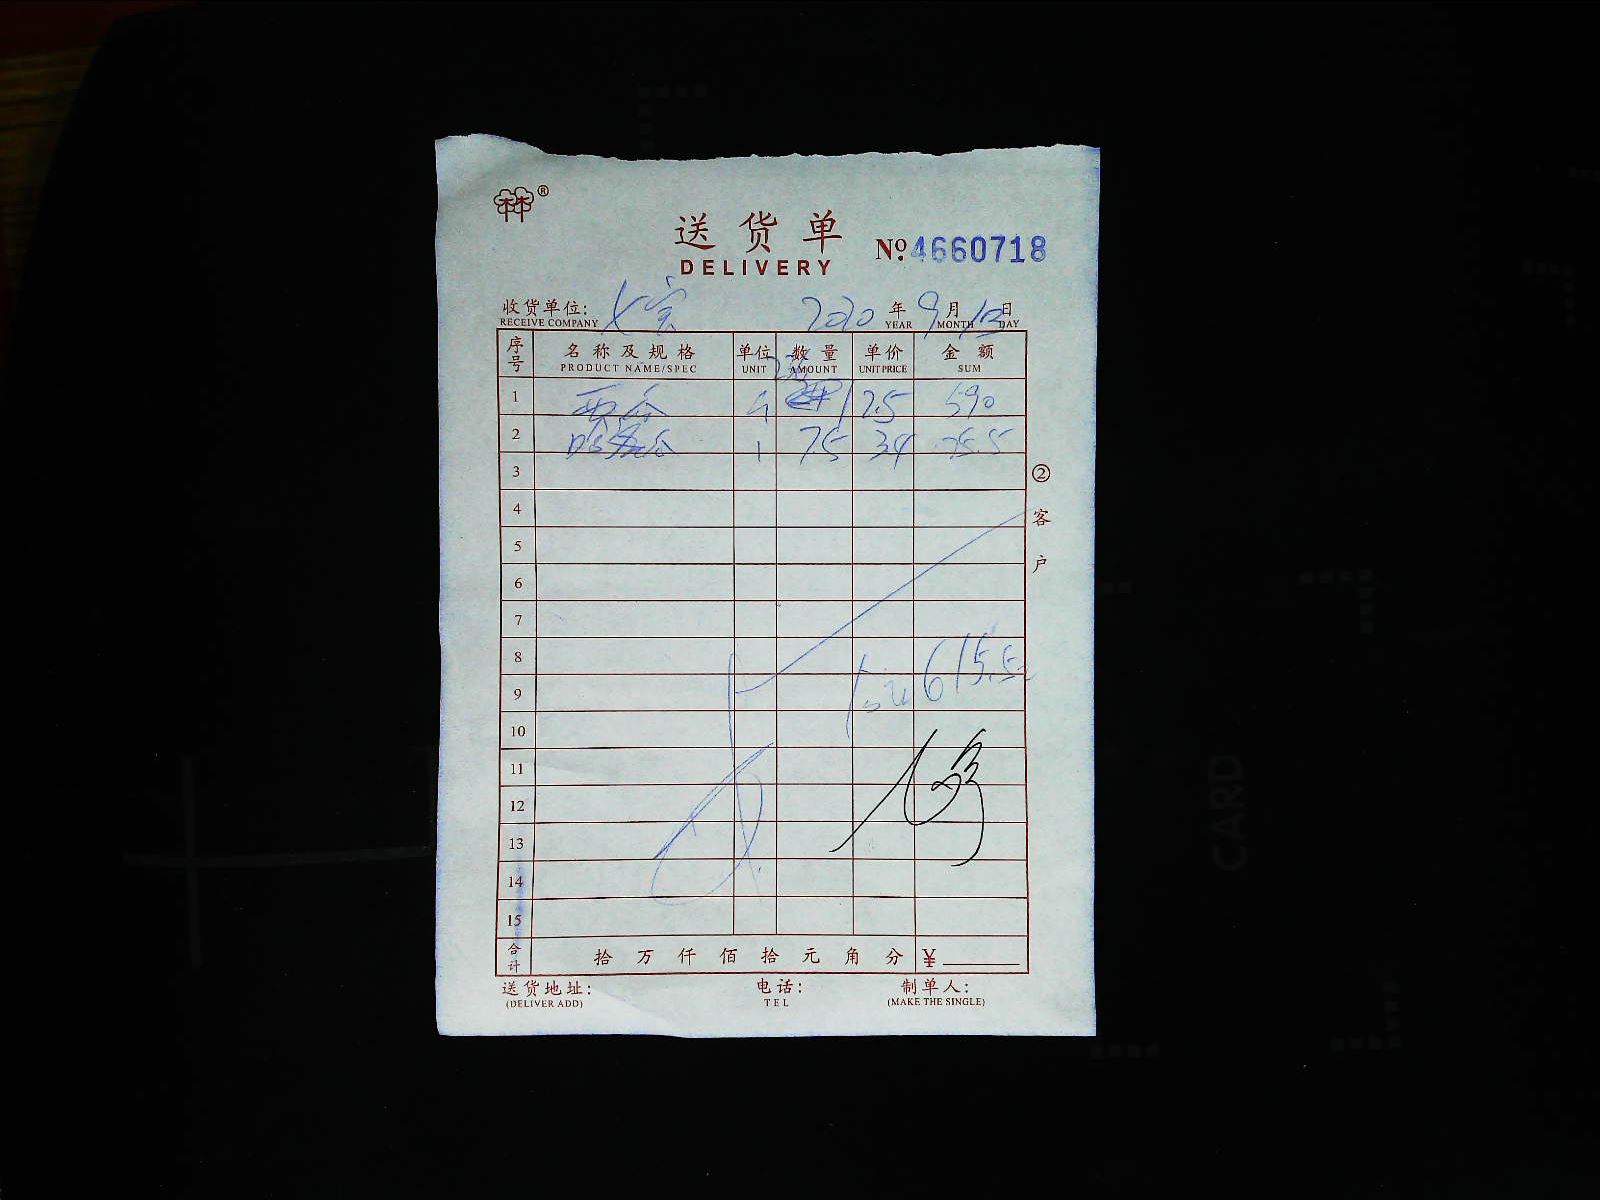 ®
送货单
DELIVERY
№ 4660718
收货单位: 2020 年 9 月 10 日
RECEIVE COMPANY YEAR MONTH DAY
序号 名称及规格 单位 数量 单价 金额
PRODUCT NAME/SPEC UNIT AMOUNT UNIT PRICE SUM
1 西瓜 2.5 590
2 哈密瓜 1 7.5 3.4 25.5
3
4
5
6
7
8 615.5
9
10
11
12
13
14
15
② 客户
合计 拾 万 仟 佰 拾 元 角 分 ¥
送货地址: 电话: 制单人:
(DELIVER ADD) TEL (MAKE THE SINGLE)
CARD